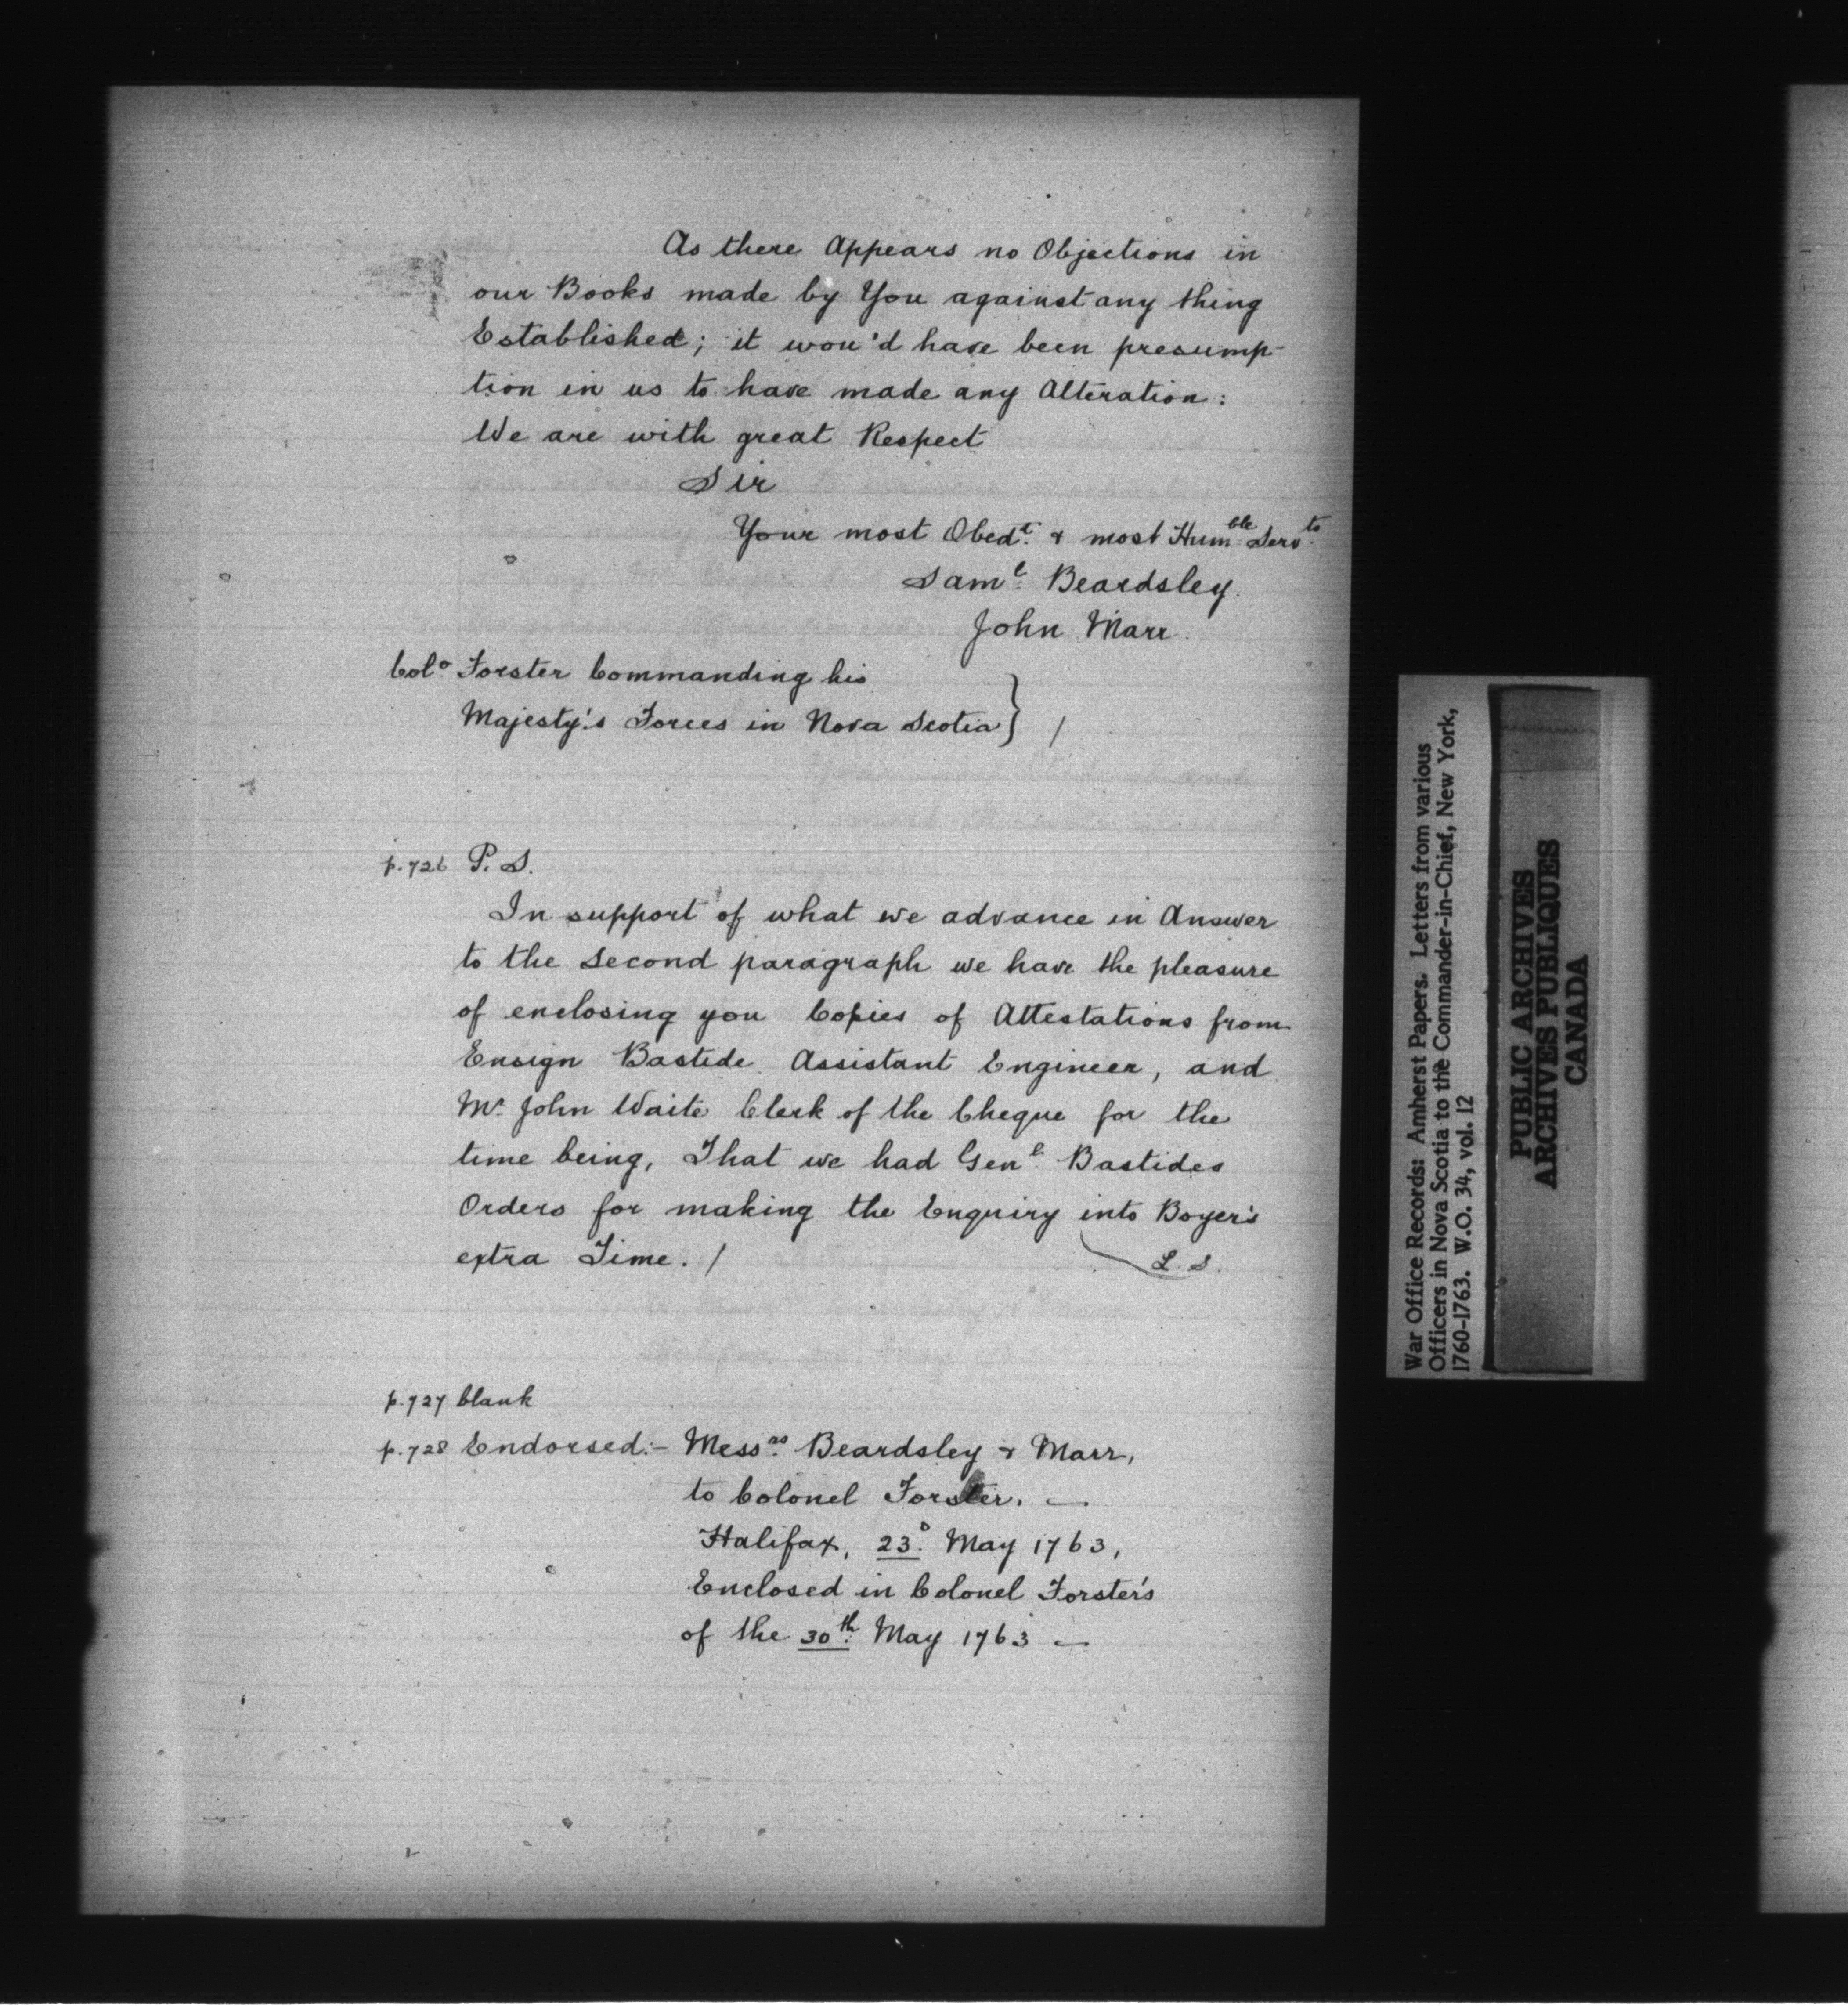 As there Appears no Objections in
our Books made by You against any thing
Established; it wou'd have been presump-
tion in us to have made any Alteration:
We are with great Respect
Sir
Your most Obedt. & most Humble Servts.
Saml. Beardsley.
John Marr.
Colo Forster Commanding his
Majesty's Forces in Nova Scotia} /
p.726 P.S.
In support of what we advance in Answer
to the Second paragraph we have the pleasure
of enclosing you Copies of Attestations from
Ensign Bastide Assistant Engineer, and
Mr. John Waite Clerk of the Cheque for the
time being, That we had Genl. Bastides
Orders for making the Enquiry into Boyer's
extra Time. / L.S.
p.727 blank
p.728 Endorsed:- Messrs. Beardsley & Marr,
to Colonel Forster. —
Halifax, 23d. May 1763,
Enclosed in Colonel Forster's
of the 30th. May 1763 —
War Office Records: Amherst Papers. Letters from various
Officers in Nova Scotia to the Commander-in-Chief, New York,
1760-1763. W.O. 34, vol. 12
PUBLIC ARCHIVES
ARCHIVES PUBLIQUES
CANADA